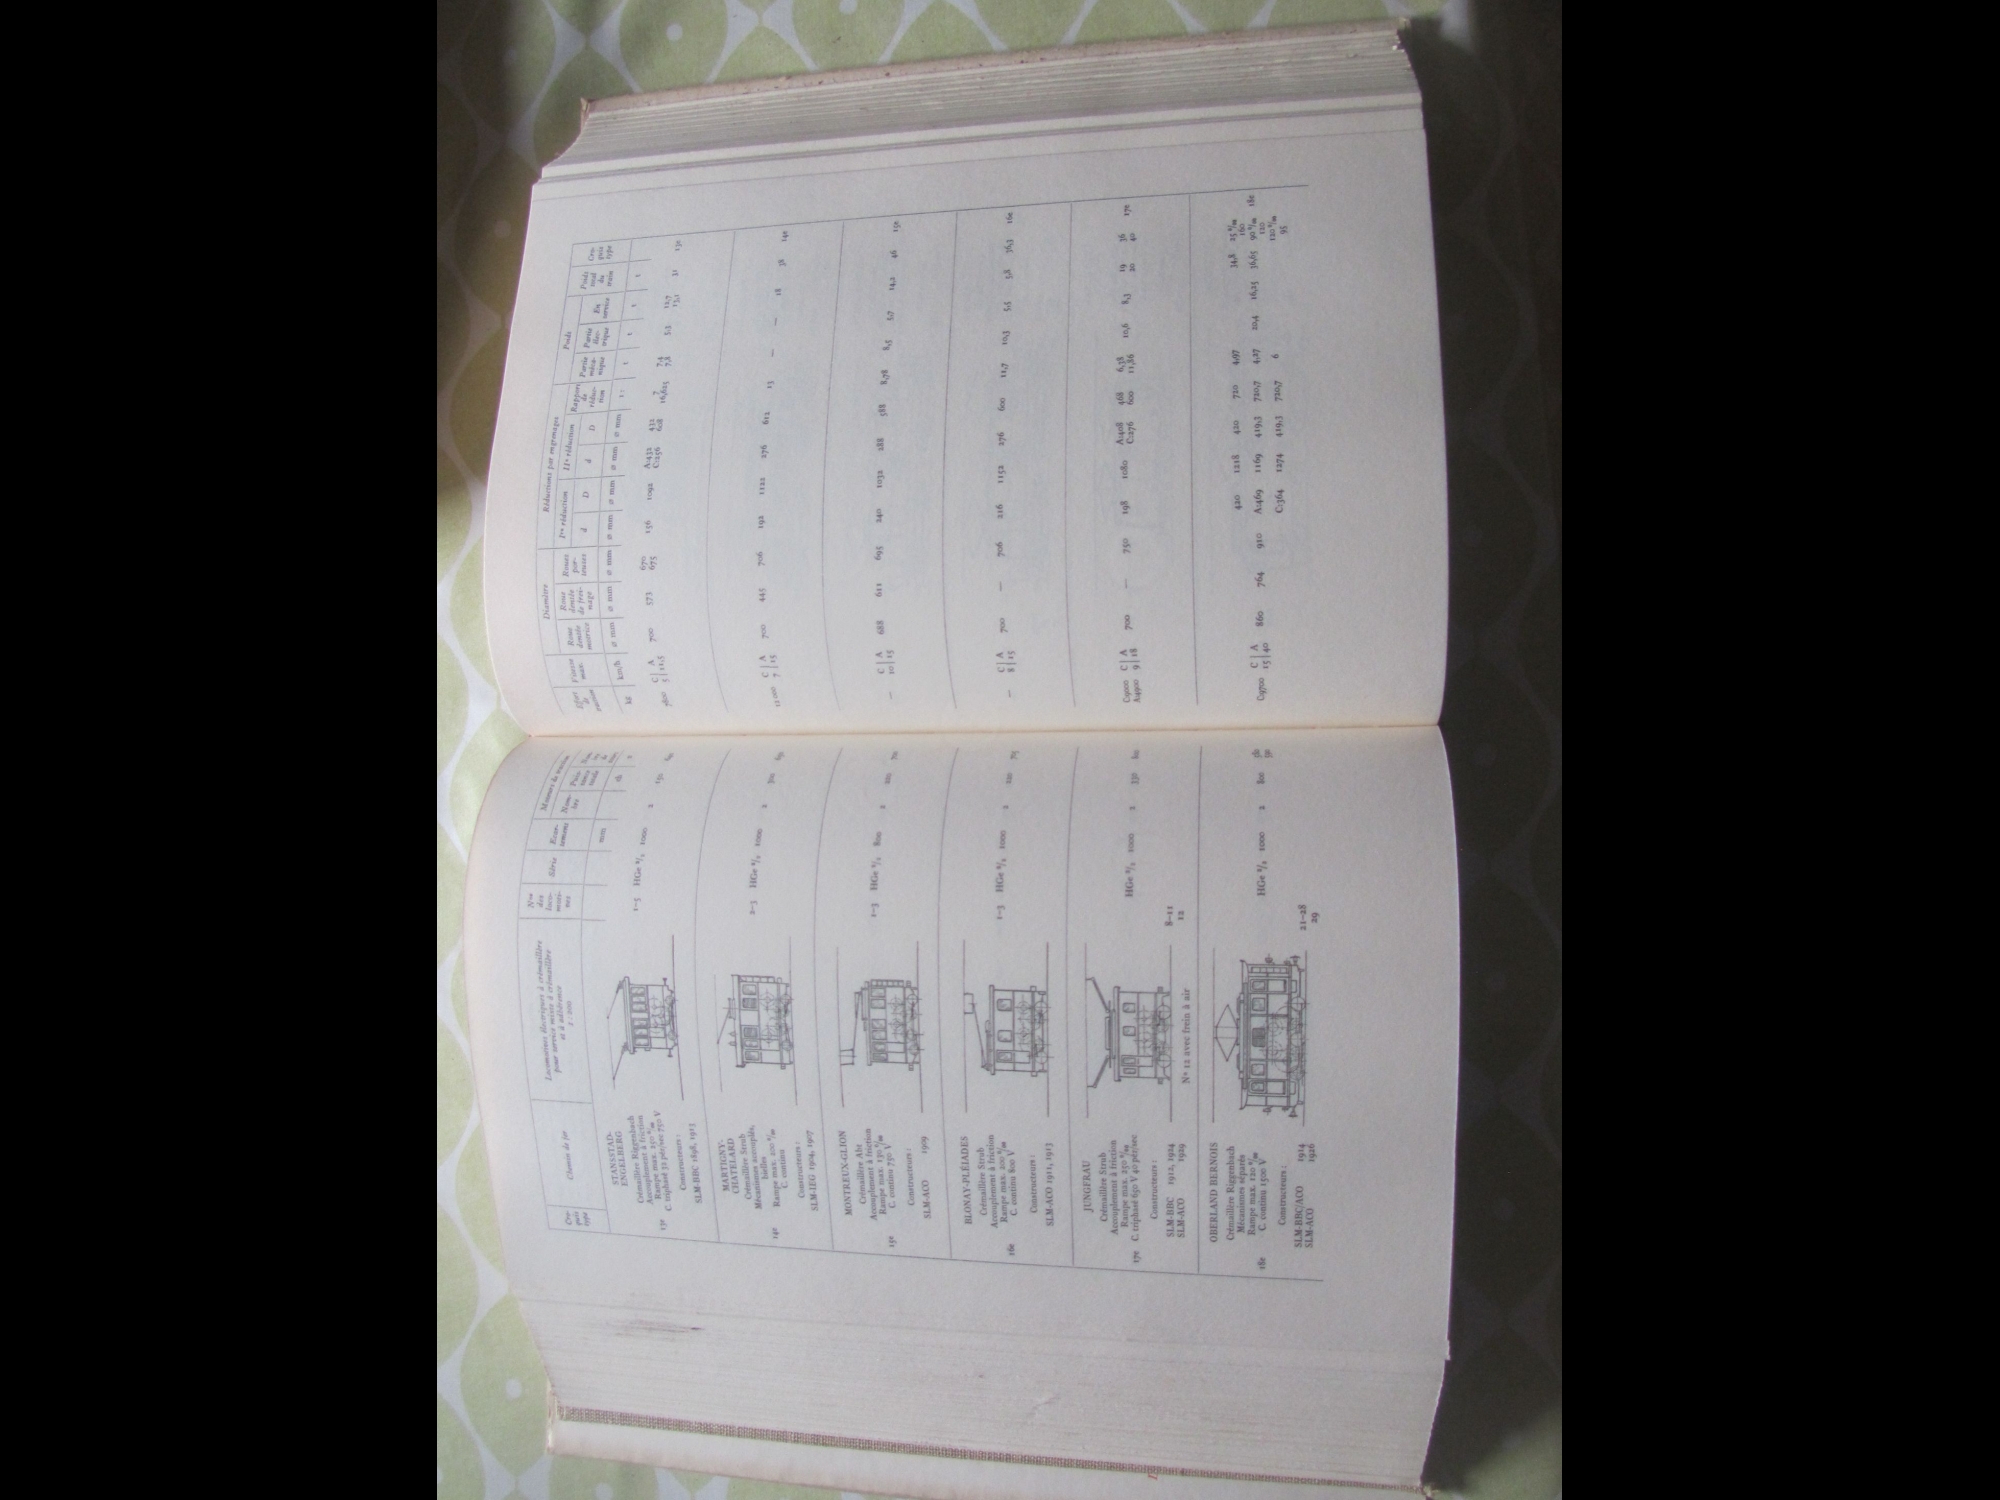 Cro-
quis
type
Chemin de fer
Locomotives électriques à crémaillère
pour service mixte à crémaillère
et à adhérence
1 : 200
Nos
des
loco-
moti-
ves
Série
Ecar-
tement
mm
Moteurs de traction
Nom-
bre
Puis-
sance
ch
STANSSTAD-
ENGELBERG
Crémaillère Riggenbach
Accouplement à friction
Rampe max. 250 ‰
13e C. triphasé 32 pér/sec 750 V
Constructeurs :
SLM-BBC 1898, 1913
1–5 HGe 2/2 1000 2 150
MARTIGNY-
CHATELARD
Crémaillère Strub
Mécanismes accouplés,
bielles
14e Rampe max. 200 ‰
C. continu
Constructeurs :
SLM-IEG 1904, 1907
2–3 HGe 2/2 1000 2
MONTREUX-GLION
Crémaillère Abt
Accouplement à friction
Rampe max. 130 ‰
15e C. continu 750 V
Constructeurs :
SLM-ACO 1909
1–3 HGe 2/2 800 2 220 70
BLONAY-PLÉIADES
Crémaillère Strub
Accouplement à friction
Rampe max. 200 ‰
16e C. continu 800 V
Constructeurs :
SLM-ACO 1911, 1913
1–3 HGe 2/2 1000 2 220 75
JUNGFRAU
Crémaillère Strub
Accouplement à friction
Rampe max. 250 ‰
17e C. triphasé 650 V 40 pér/sec
Constructeurs :
SLM-BBC 1912, 1924
SLM-ACO 1929
N° 12 avec frein à air
8–11
12
HGe 2/2 1000 2 330 80
OBERLAND BERNOIS
Crémaillère Riggenbach
Mécanismes séparés
Rampe max. 120 ‰
18e C. continu 1500 V
Constructeurs :
SLM-BBC/ACO 1914
SLM-ACO 1926
21–28
29
HGe 3/3 1000 2 800
Effort
de
traction
kg
Vitesse
max.
km/h
Diamètre
Roue
dentée
motrice
ø mm
Roue
dentée
de frei-
nage
ø mm
Roues
por-
teuses
ø mm
Réductions par engrenages
Ire réduction
d
ø mm
D
ø mm
IIe réduction
d
ø mm
D
ø mm
Rapport
de
réduc-
tion
1 :
Poids
Partie
méca-
nique
t
Partie
élec-
trique
t
En
service
t
Poids
total
du
train
t
Cro-
quis
type
C | A
5 | 11,5
700 573 670
675
156 1092 A:432
C:256
432
608
7
16,625
7,4
7,8
5,3 12,7
13,1
21 13e
12 000 C | A
7 | 15
700 445 706 192 1122 276 612 13 — — 18 38 14e
— C | A
10 | 15
688 611 695 240 1032 288 588 8,78 8,5 5,7 14,2 46 15e
— C | A
8 | 15
700 — 706 216 1152 276 600 11,7 10,3 5,5 5,8 36,3 16e
C:9000
A:4900
C | A
9 | 18
700 — 750 198 1080 A:408
C:276
468
600
6,38
11,86
10,6 8,3 19
20
36
40
17e
C:9700 C | A
15 | 40
860 764 910
420 1218 420 720 4,97 34,8 25 ‰
160
A:469 1169 419,3 720,7 4,27 20,4 16,25 36,65 90 ‰
120
18e
C:364 1274 419,3 720,7 6 120 ‰
95